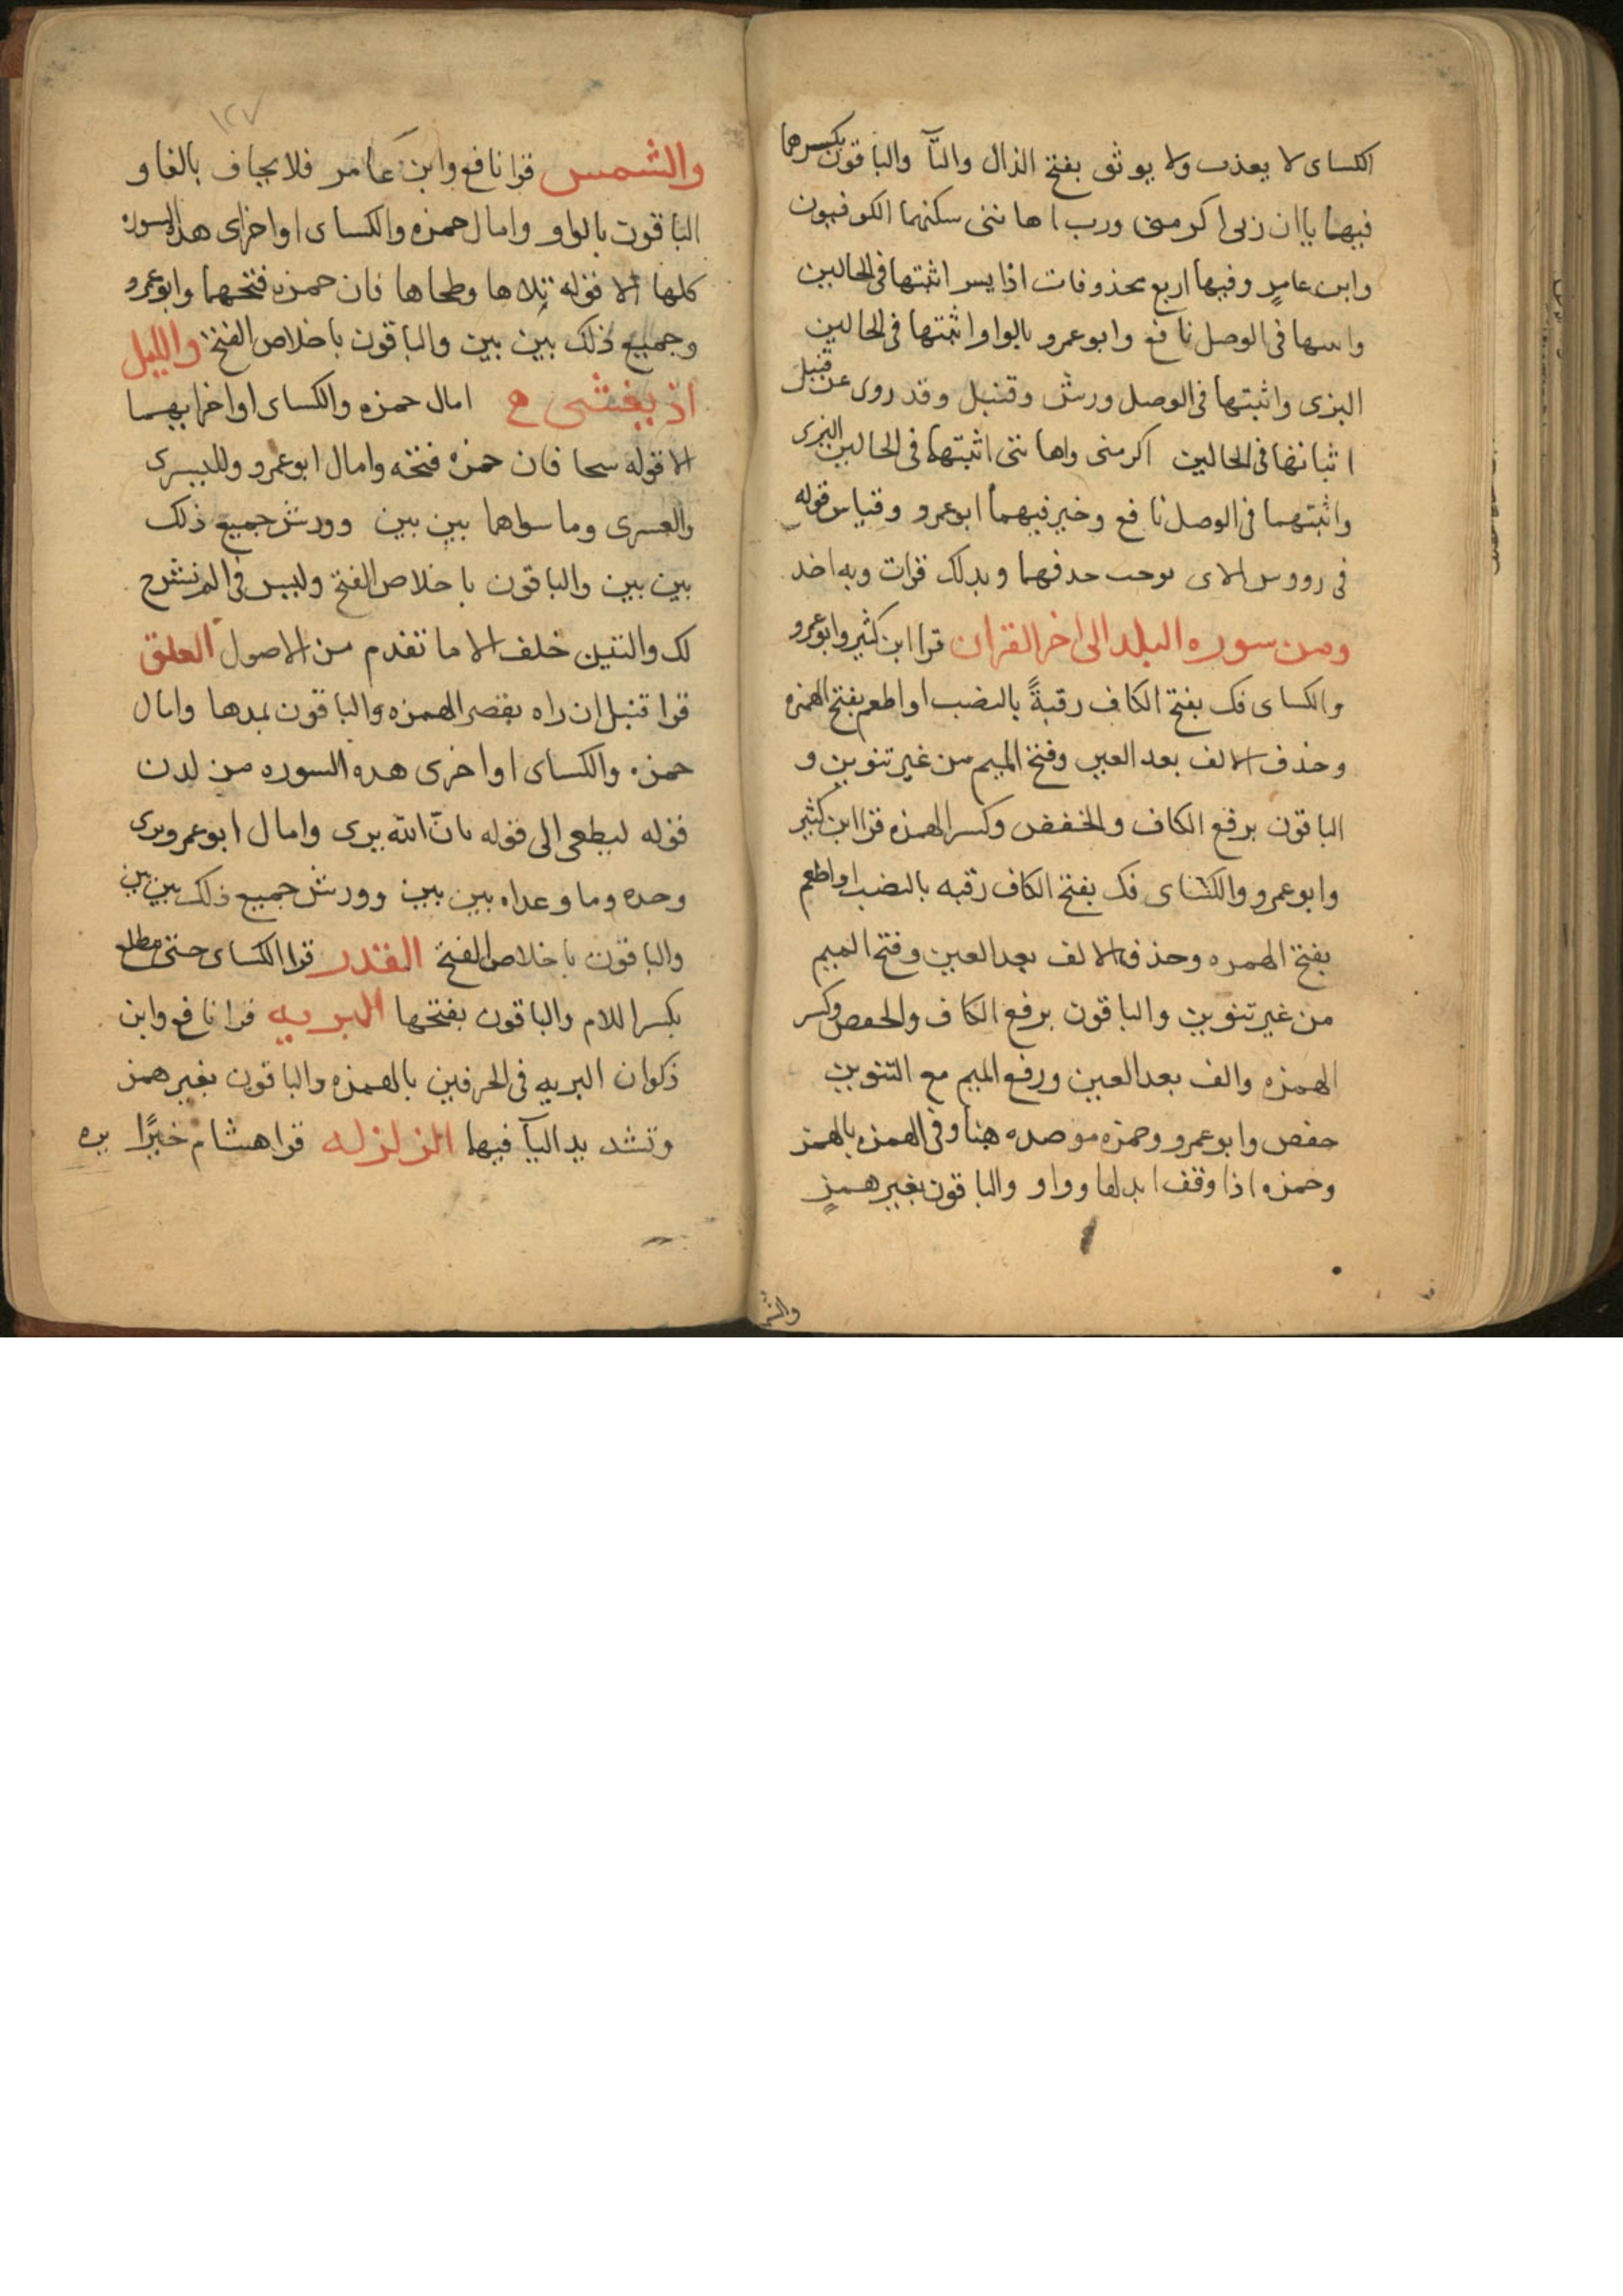 الكساى لا يعذب ولا يوثق بفتح الذال والثآ والباقون بكسرهما
فيهما ياان ربى اكرمن ورب اهاننى سكنهما الكوفيون
وابن عامرٍ وفيها اربع محذوفات اذا يسر اثبتها فى الحالين
واسها فى الوصل نافع وابو عمرو بالواو اثبتها فى الحالين
البزى واثبتها فى الوصل ورش وقنبل وقد روى عن قنبل
اثباتها فى الحالين اكرمنى واهاننى اثبتهما فى الحالين البزى
واثبتهما فى الوصل نافع وخير فيهما ابو عمرو وقياس قوله
فى رووس الاى نوجب حدفهما وبدلك قرات وبه اخد
ومن سوره البلد الى اخر القران قرا ابن كثير وابو عمرو
والكساى فك بفتح الكاف رقبةً بالنصب او اطعم بفتح الهمزه
وحذف الالف بعد العين وفتح الميم من غير تنوين و
الباقون برفع الكاف والخفض وكسر الهمزه قرا ابن كثير
وابو عمرو والكساى فك بفتح الكاف رقبه بالنصب او اطعم
بفتح الهمره وحذف الالف بعد العين وفتح الميم
من غير تنوين والباقون برفع الكاف والخفض وكسر
الهمزه والف بعد العين ورفع الميم مع التنوين
حفص وابو عمرو وحمزه موصده هنا وفى الهمزه بالهمز
وحمزه اذا وقف ابدلها وواو والباقون بغير همزٍ
والشمس
١٢٧
والشمس قرا نافع وابن عامر فلا يخاف بالفا و
الباقون بالواو وامال حمزه والكساى اواخر اى هذه السوره
كلها الا قوله تلاها وطحاها فان حمزه فتحهما وابو عمرو
وجميع ذلك بين بين والباقون باخلاص الفتح والليل
اذ يغشى امال حمزه والكساى اواخر ايهما
الا قوله سجا فان حمزه فتحه وامال ابو عمرو ولليسرى
والعسرى وما سواهما بين بين وورش جميع ذلك
بين بين والباقون باخلاص الفتح وليس فى الم نشرح
لك والتين خلف الا ما تقدم من الاصول العلق
قرا قنبل ان راه بقصر الهمزه والباقون بمدها وامال
حمزه والكساى اواخر اى هده السوره من لدن
قوله ليطعى الى قوله بانّ الله يرى وامال ابو عمرو يرى
وحده وما وعداه بين بين وورش جميع ذلك بين بين
والباقون باخلاص الفتح القدر قرا الكساى حتى مطلع
بكسر اللام والباقون بفتحها البريه قرا نافع وابن
ذكوان البريه فى الحرفين بالهمزه والباقون بغير همز
وتشديد اليآ فيها الزلزله قرا هشام خيرًا يره